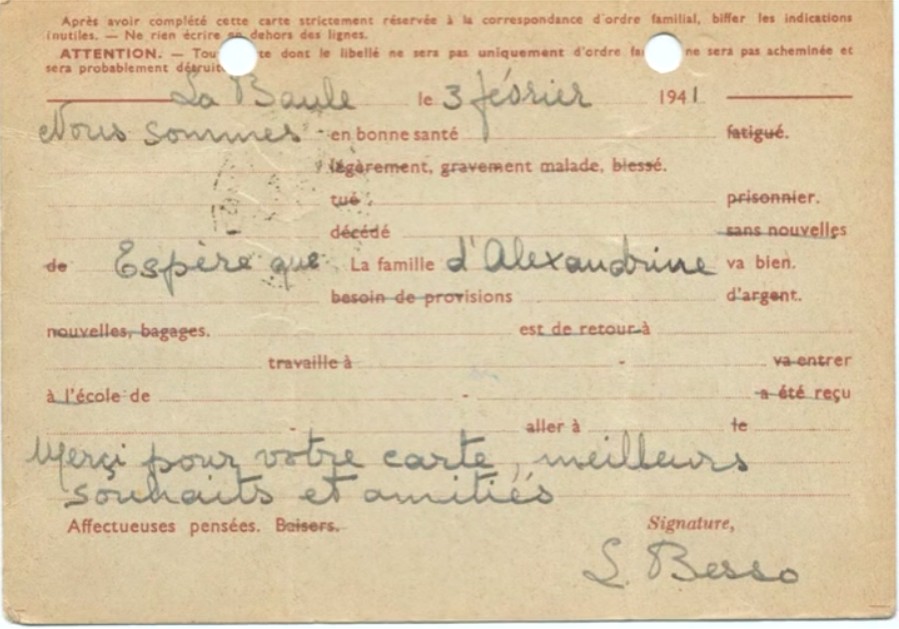 Après avoir complété cette carte strictement réservée à la correspondance d'ordre familial, biffer les indications
inutiles. — Ne rien écrire en dehors des lignes.
ATTENTION. — Tou te dont le libellé ne sera pas uniquement d'ordre fa ne sera pas acheminée et
sera probablement détruit
La Baule le 3 février 1941
Nous sommes en bonne santé fatigué.
légèrement, gravement malade, blessé.
tué prisonnier.
décédé sans nouvelles
de Espère que La famille d'Alexandrine va bien.
besoin de provisions d'argent.
nouvelles, bagages. est de retour à
travaille à va entrer
à l'école de a été reçu
aller à le
Merçi pour votre carte, meilleurs
souhaits et amitiés
Affectueuses pensées. Baisers. Signature,
L. Besso